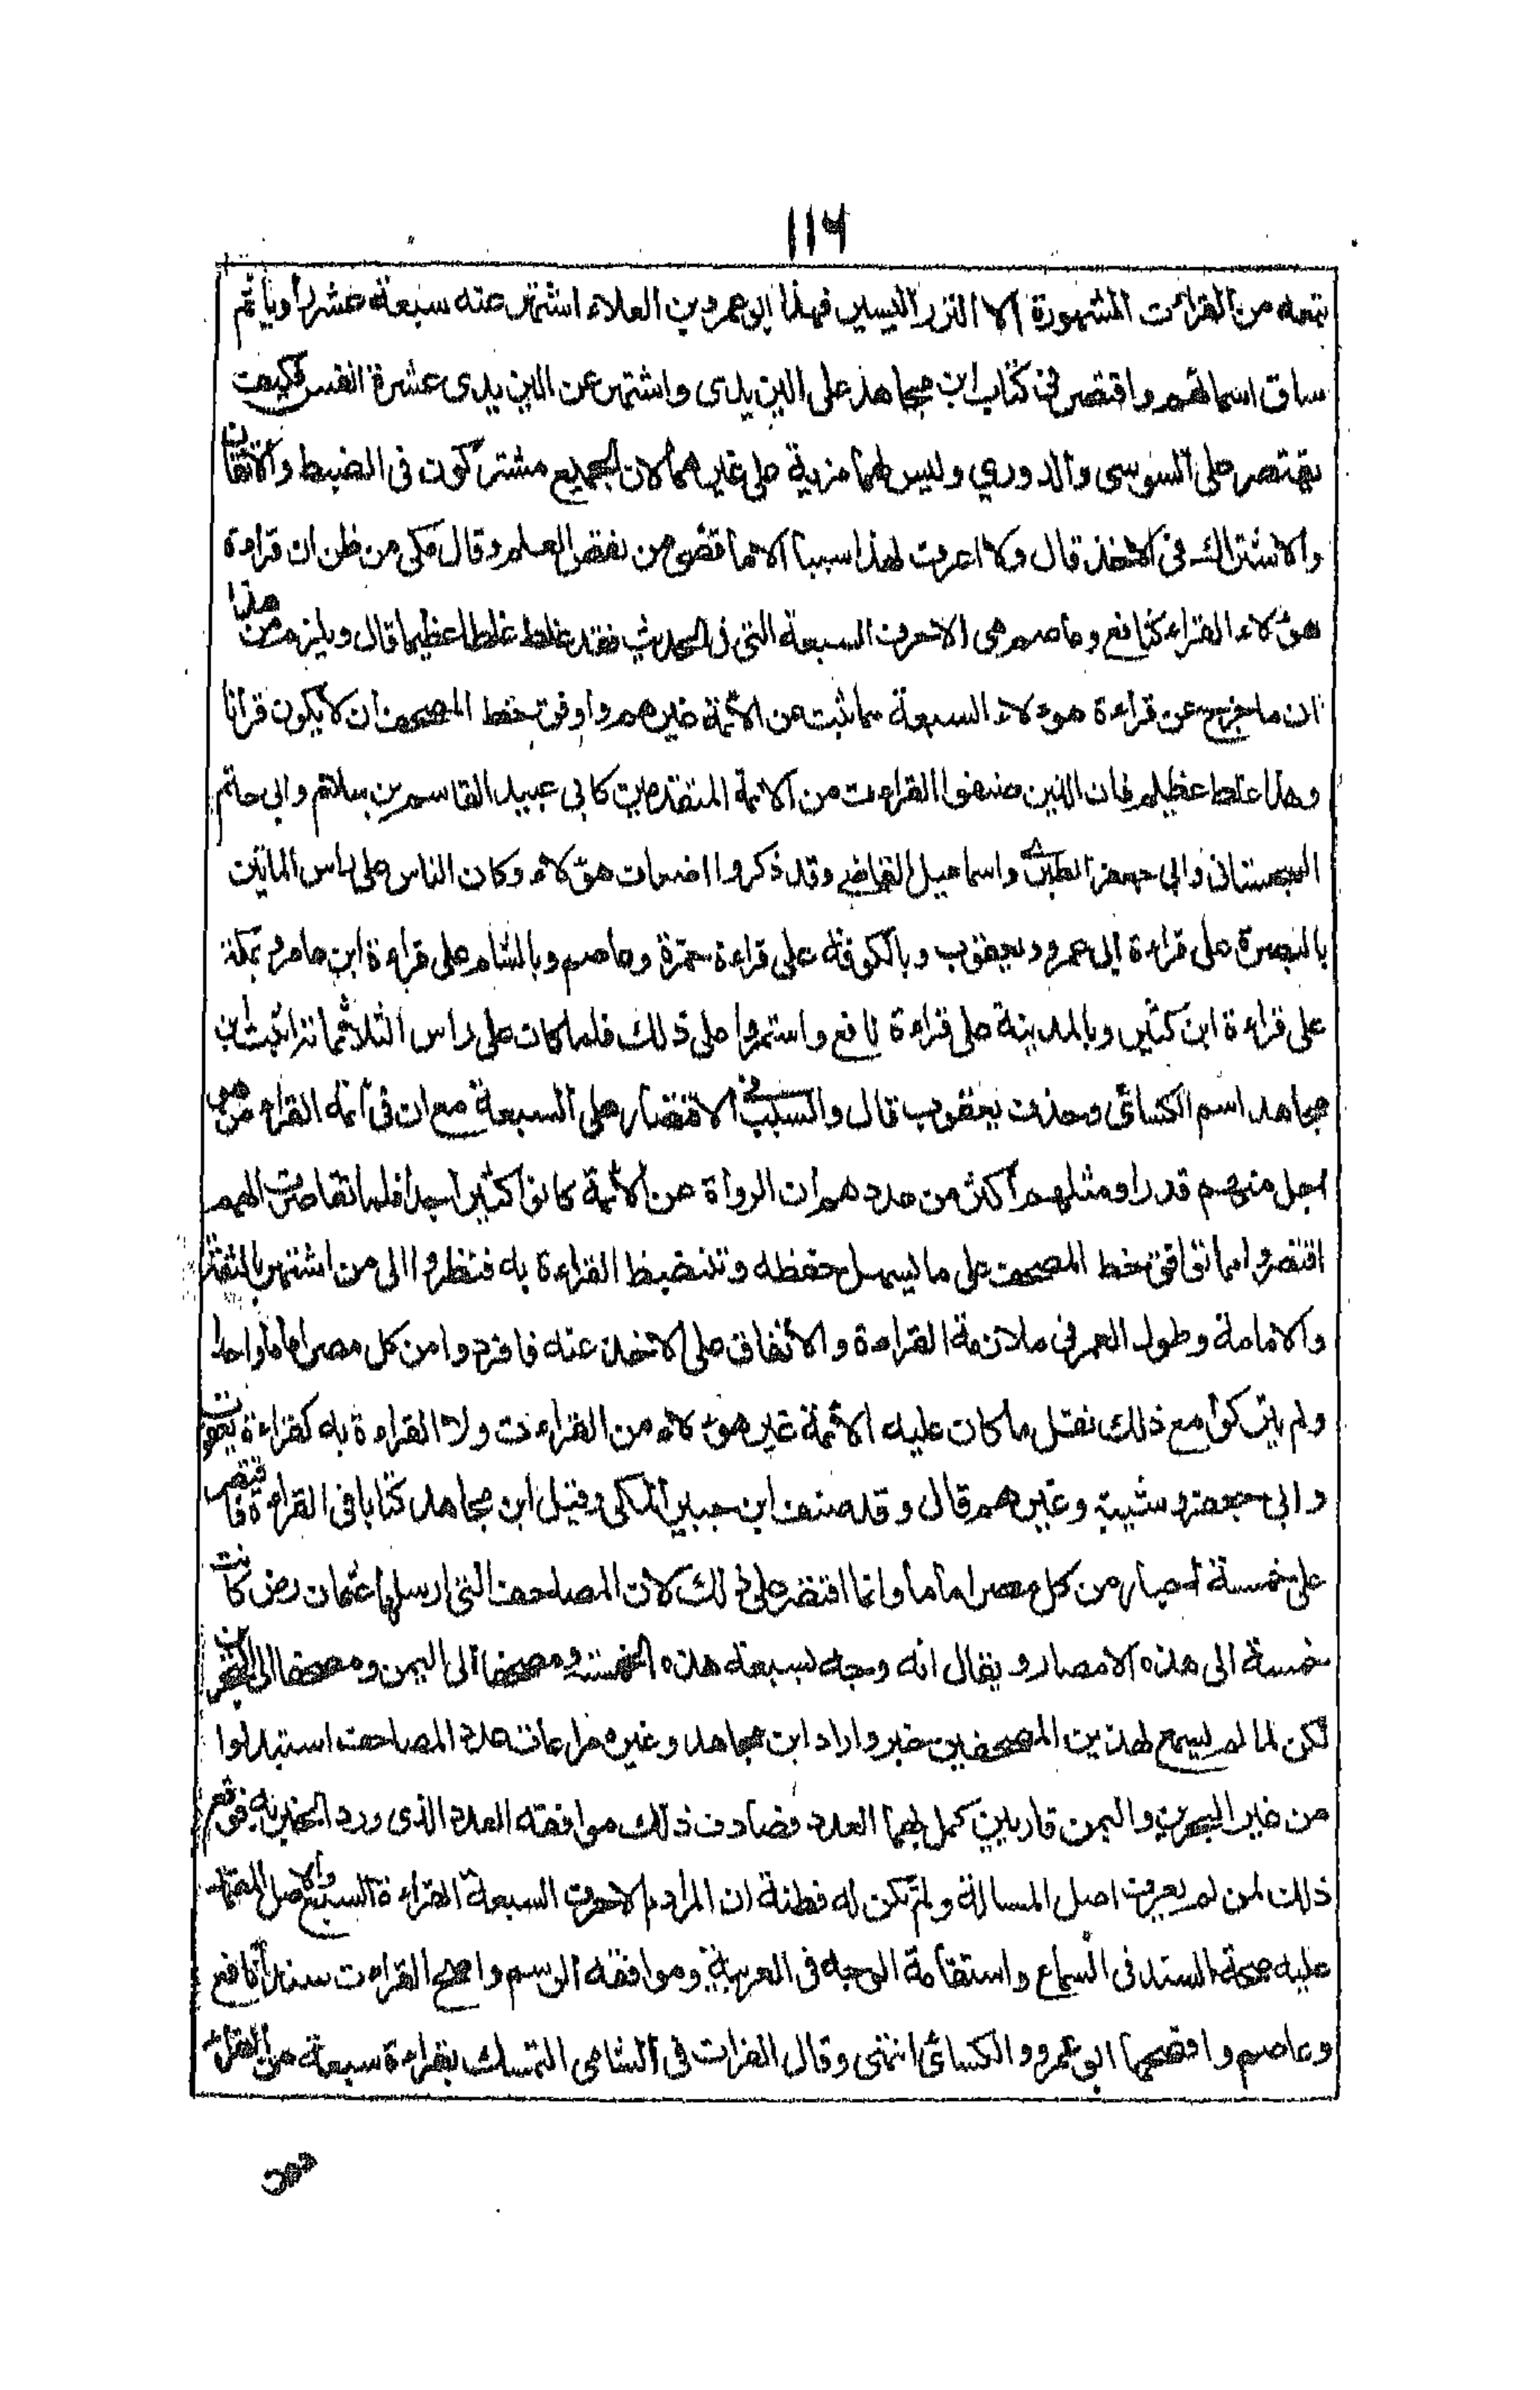 ١١٦
تبعه من القرائت المشهورة الا النزر اليسير فهذا ابو عمرو بن العلاء اشتهر عنه سبعة عشر راويا ثم
ساق اسمائهم واقتصر في كتاب ابن مجاهد على اليزيدى واشتهر عن اليزيدى عشرة انفس فكيف
يقتصر على السوسى والدوري وليس لهما مزية على غيرهما لان الجميع مشتركون فى الضبط والاتقان
والاشتراك فى الاخذ قال ولا اعرف لهذا سببا الا ما قضى من نقص العلم وقال مكى من ظن ان قراءة
هؤلاء القراء كنافع وعاصم هى الاحرف السبعة التى فى الحديث فقد غلط غلطا عظيما قال ويلزم من هذا
ان ما خرج عن قراءة هوءلاء السبعة مما ثبت عن الأئمة غيرهم ووافق خط المصحف ان لا يكون قرانا
وهذا غلط عظيم فان الذين صنفوا القراءت من الائمة المتقدمين كابى عبيد القاسم بن سلام وابى حاتم
السجستانى وابى جعفر الطبرى واسماعيل القاضى وقد ذكروا اضعاف هؤلاء وكان الناس على راس الماتين
بالبصرة على قراءة ابى عمرو ويعقوب وبالكوفة على قراءة حمزة وعاصم وبالشام على قراءة ابن عامر وبمكة
على قراءة ابن كثير وبالمدينة على قراءة نافع واستمروا على ذلك فلما كان على راس الثلاثمائة اثبت ابن
مجاهد اسم الكسائى وحذف يعقوب قال والسبب فى الاقتصار على السبعة مع ان فى ائمة القراء من هو
اجل منهم قدرا ومثلهم اكثر من عددهم ان الرواة عن الأئمة كانوا كثيرا جدا فلما تقاصرت الهمم
اقتصروا مما توافق خط المصحف على ما يسهل حفظه وتنضبط القراءة به فنظروا الى من اشتهر بالثقة
والامامة وطول العمر فى ملازمة القراءة والاتفاق على الاخذ عنه فافردوا من كل مصر اماما واحدا
ولم يتركوا مع ذلك نقل ما كان عليه الأئمة غير هؤلاء من القراءت ولا القراءة به كقراءة يعقوب
وابى جعفر وشيبة وغيرهم قال وقد صنف ابن جبير المكى وقيل ابن مجاهد كتابا فى القراءة فاقتصر
على خمسة احبار من كل مصر اماما وانما اقتصر على ذلك لان المصاحف التى ارسلها عثمان رض كانت
خمسة الى هذه الامصار ويقال انه وجه بسبعة هذه الخمسة ومصحفا الى اليمن ومصحفا الى البحرين
لكن لما لم يسمع لهذين المصحفين خبر واراد ابن مجاهد وغيره مراعاة عدد المصاحف استبدلوا
من غير البحرين واليمن قاريين كمل بهما العدد فصادف ذلك موافقة العدد الذى ورد الخبر به فوقع
ذلك لمن لم يعرف اصل المسالة ولم تكن له فطنة ان المراد بالاحرف السبعة القراءة السبع والاصل المعتمد
عليه صحة السند فى السماع واستقامة الوجه فى العربية وموافقة الرسم واصح القراءت سندا نافع
وعاصم وافصحها ابو عمرو والكسائى انتهى وقال القراب فى الشافى التمسك بقراءة سبعة من القراء